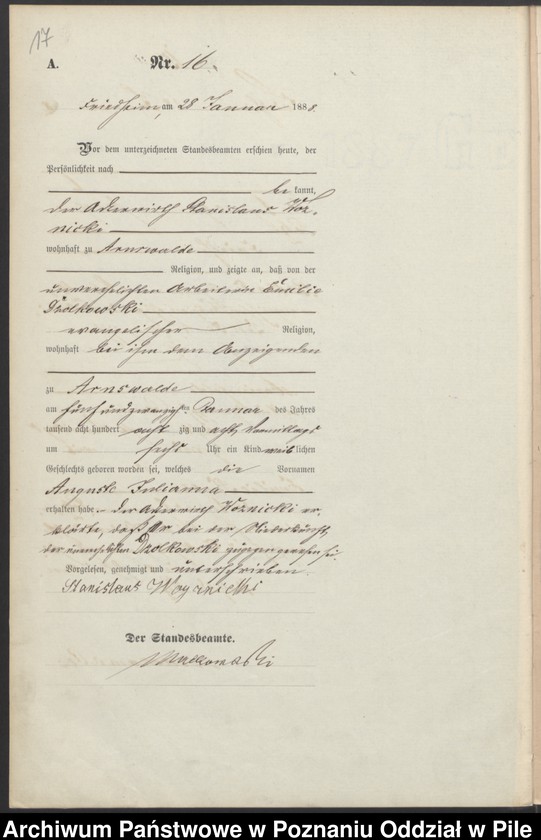 17
A.
Nr. 16.
Friedheim, am 28 Januar 1888.
Vor dem unterzeichneten Standesbeamten erschien heute, der
Persönlichkeit nach
be kannt,
der Ackerwirth Stanislaus Woz-
nicki
wohnhaft zu Arnswalde
Religion, und zeigte an, daß von der
unverehelichten Arbeiterin Emilie
Dzolkowski
evangelischer Religion,
wohnhaft bei ihm dem Anzeigenden
zu Arnswalde
am fünfundzwanzigsten Januar des Jahres
tausend acht hundert acht zig und acht, Vormittags
um sechs Uhr ein Kind weib lichen
Geschlechts geboren worden sei, welches die Vornamen
Auguste Julianna
erhalten habe. Der Ackerwirth Woznicki er-
klärte, daß er bei der Niederkunft
der unverehelichten Dzolkowski zugegen gewesen sei.
Vorgelesen, genehmigt und unterschrieben
Stanislaus
Der Standesbeamte.
Archiwum Państwowe w Poznaniu Oddział w Pile